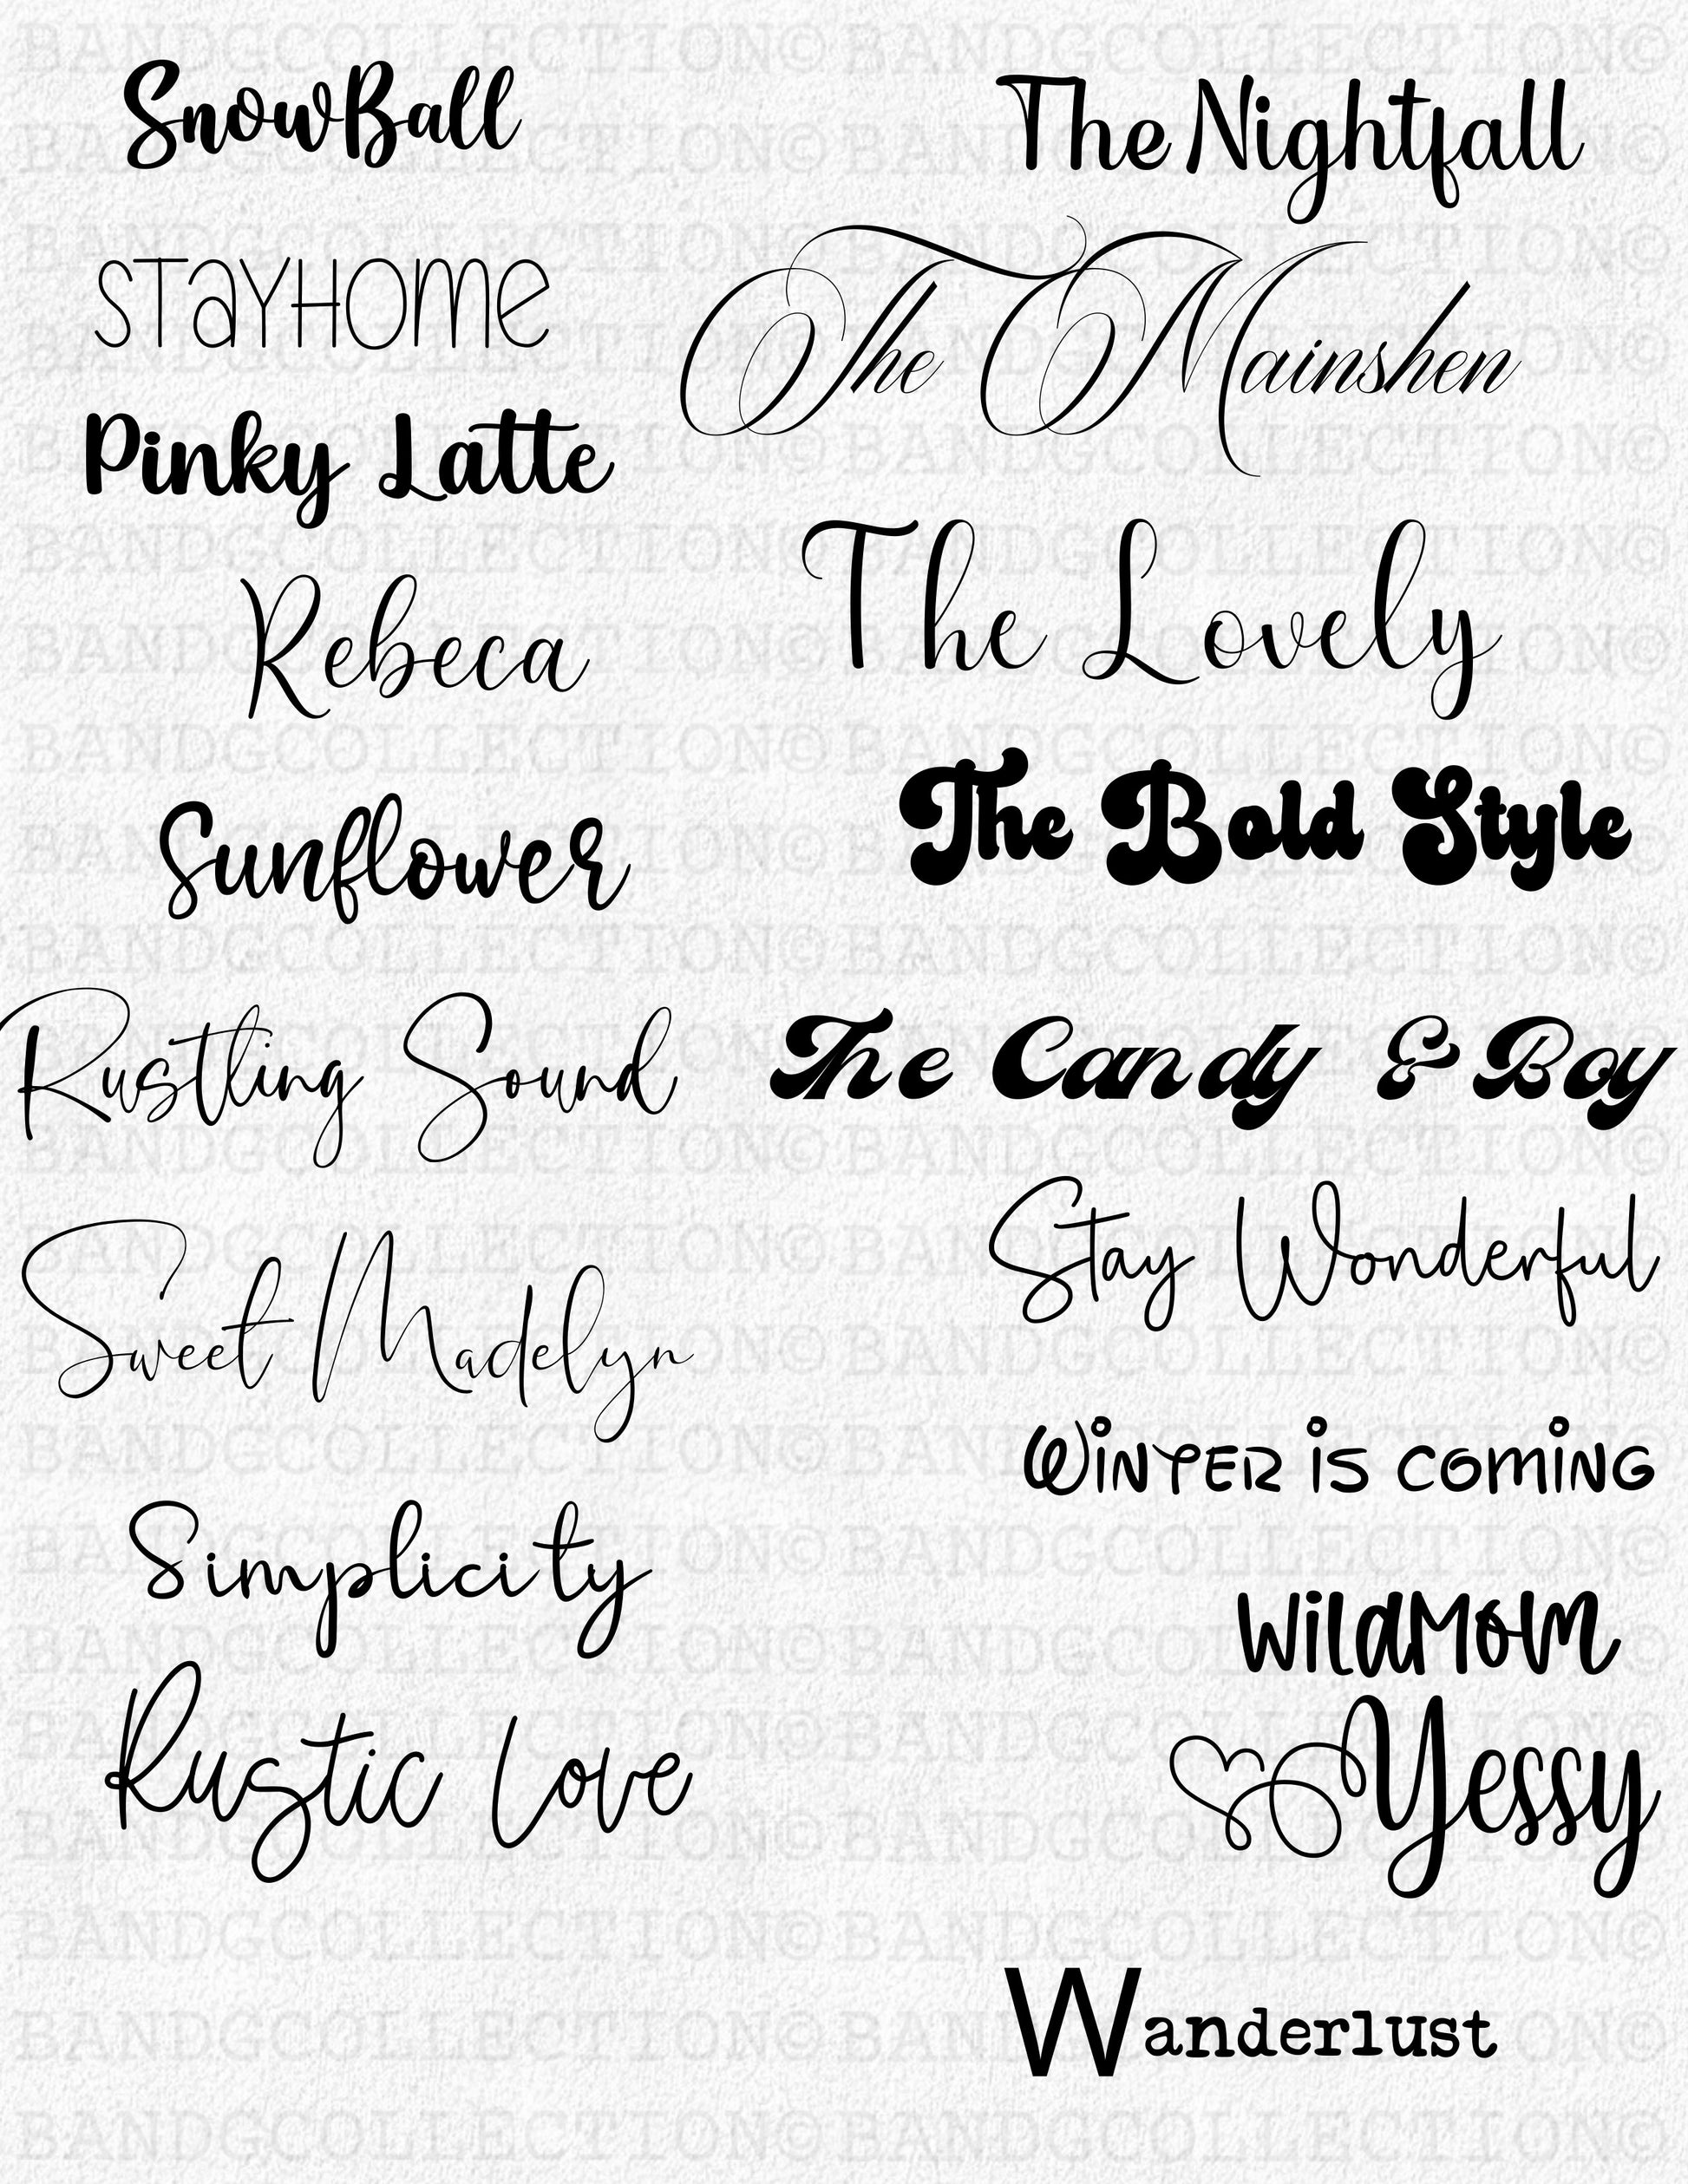 SnowBall
STAYHOME
Pinky Latte
Rebeca
Sunflower
Rustling Sound
Sweet Madelyn
Simplicity
Rustic Love
The Nightfall
The Mainshen
The Lovely
The Bold Style
The Candy & Boy
Stay Wonderful
WiNTER iS COMiNG
WildMom
Yessy
Wanderlust
BANDGCOLLECTION© BANDGCOLLECTION©